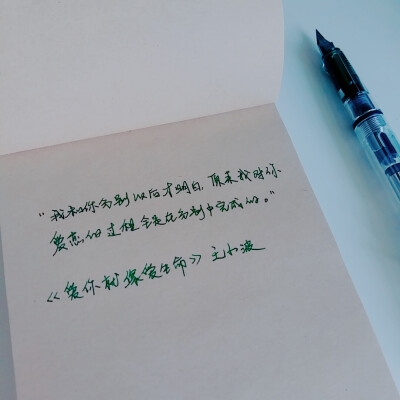 “我和你分别以后才明白，原来我对你
爱恋的过程全是在分别中完成的。”
《爱你就像爱生命》王小波